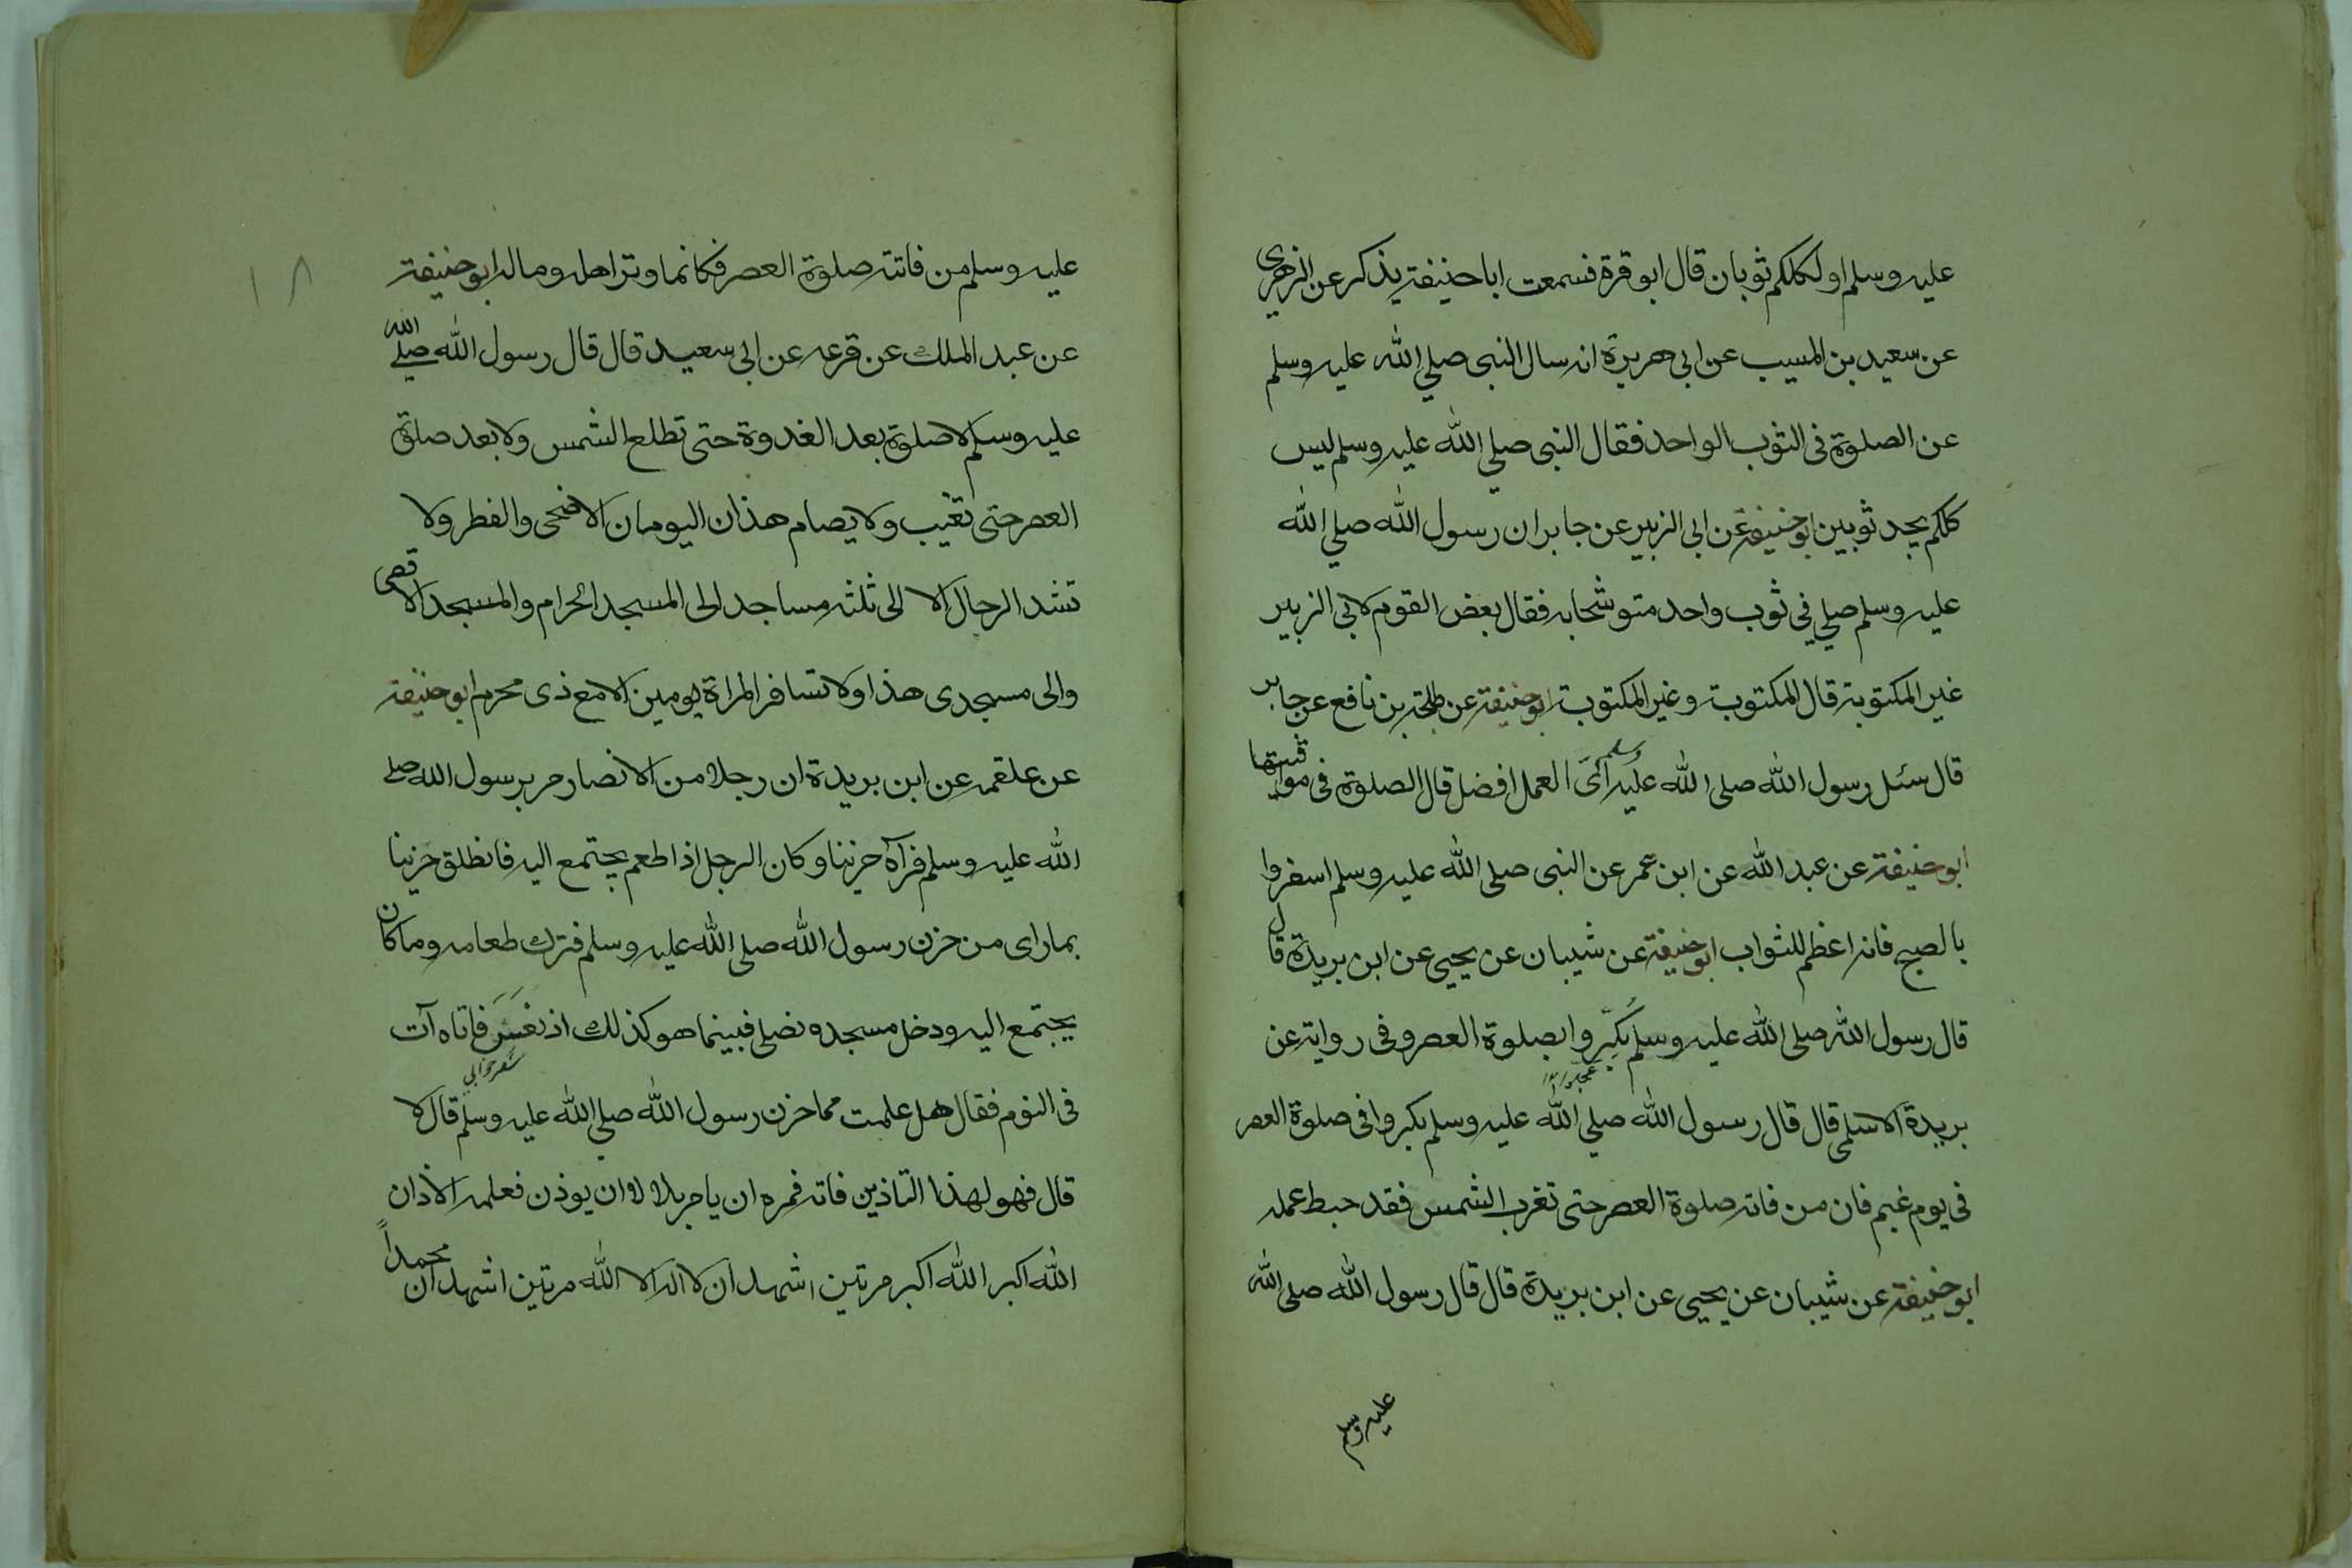 عليه وسلم اولكلكم ثوبان قال ابو قرة فسمعت ابا حنيفة يذكر عن الزهري
عن سعيد بن المسيب عن ابي هريرة انه سال النبي صلي الله عليه وسلم
عن الصلوة في الثوب الواحد فقال النبي صلي الله عليه وسلم ليس
كلكم يجد ثوبين ابو حنيفة عن ابي الزبير عن جابر ان رسول الله صلي الله
عليه وسلم صلي في ثوب واحد متوشحا به فقال بعض القوم لابي الزبير
غير المكتوبة قال المكتوبة وغير المكتوبة ابو حنيفة عن طلحة بن نافع عن جابر
قال سئل رسول الله صلى الله عليه وسلم أيّ العمل افضل قال الصلوة في مواقيتها
ابو حنيفة عن عبد الله عن ابن عمر عن النبي صلى الله عليه وسلم اسفروا
بالصبح فانه اعظم للثواب ابو حنيفة عن شيبان عن يحيى عن ابن بريدة قال
قال رسول الله صلى الله عليه وسلم بكّروا بصلوة العصر وفي رواية عن
بريدة الاسلمي قال قال رسول الله صلي الله عليه وسلم بكروا في صلوة العصر
في يوم غيم فان من فاته صلوة العصر حتى تغرب الشمس فقد حبط عمله
ابو حنيفة عن شيبان عن يحيى عن ابن بريدة قال قال رسول الله صلى الله
عليه وسلم
١٨
عليه وسلم من فاتته صلوة العصر فكانما وتر اهله وماله ابو حنيفة
عن عبد الملك عن قزعه عن ابي سعيد قال قال رسول الله صلي الله
عليه وسلم لا صلوة بعد الغدوة حتى تطلع الشمس ولا بعد صلوة
العصر حتى تغيب ولا يصام هذان اليومان الاضحى والفطر ولا
تشد الرحال الا الى ثلثه مساجد الى المسجد الحرام والمسجد الاقصى
والى مسجدي هذا ولا تسافر المراة يومين الا مع ذى محرم ابو حنيفة
عن علقمه عن ابن بريدة ان رجلا من الانصار مر برسول الله صلى
الله عليه وسلم فرآه حزينا وكان الرجل اذا طعم يجتمع اليه فانطلق حزينا
بما راى من حزن رسول الله صلى الله عليه وسلم فترك طعامه وما كان
يجتمع اليه ودخل مسجده نصلى فبينما هو كذلك اذ نعس فاتاه آت
في النوم فقال هل علمت مما حزن رسول الله صلي الله عليه وسلم قال لا
قال فهو لهذا التاذين فاته فمره ان يامر بلالا ان يوذن فعلمه الاذان
الله اكبر الله اكبر مرتين اشهد ان لا اله الا الله مرتين اشهد ان محمداً